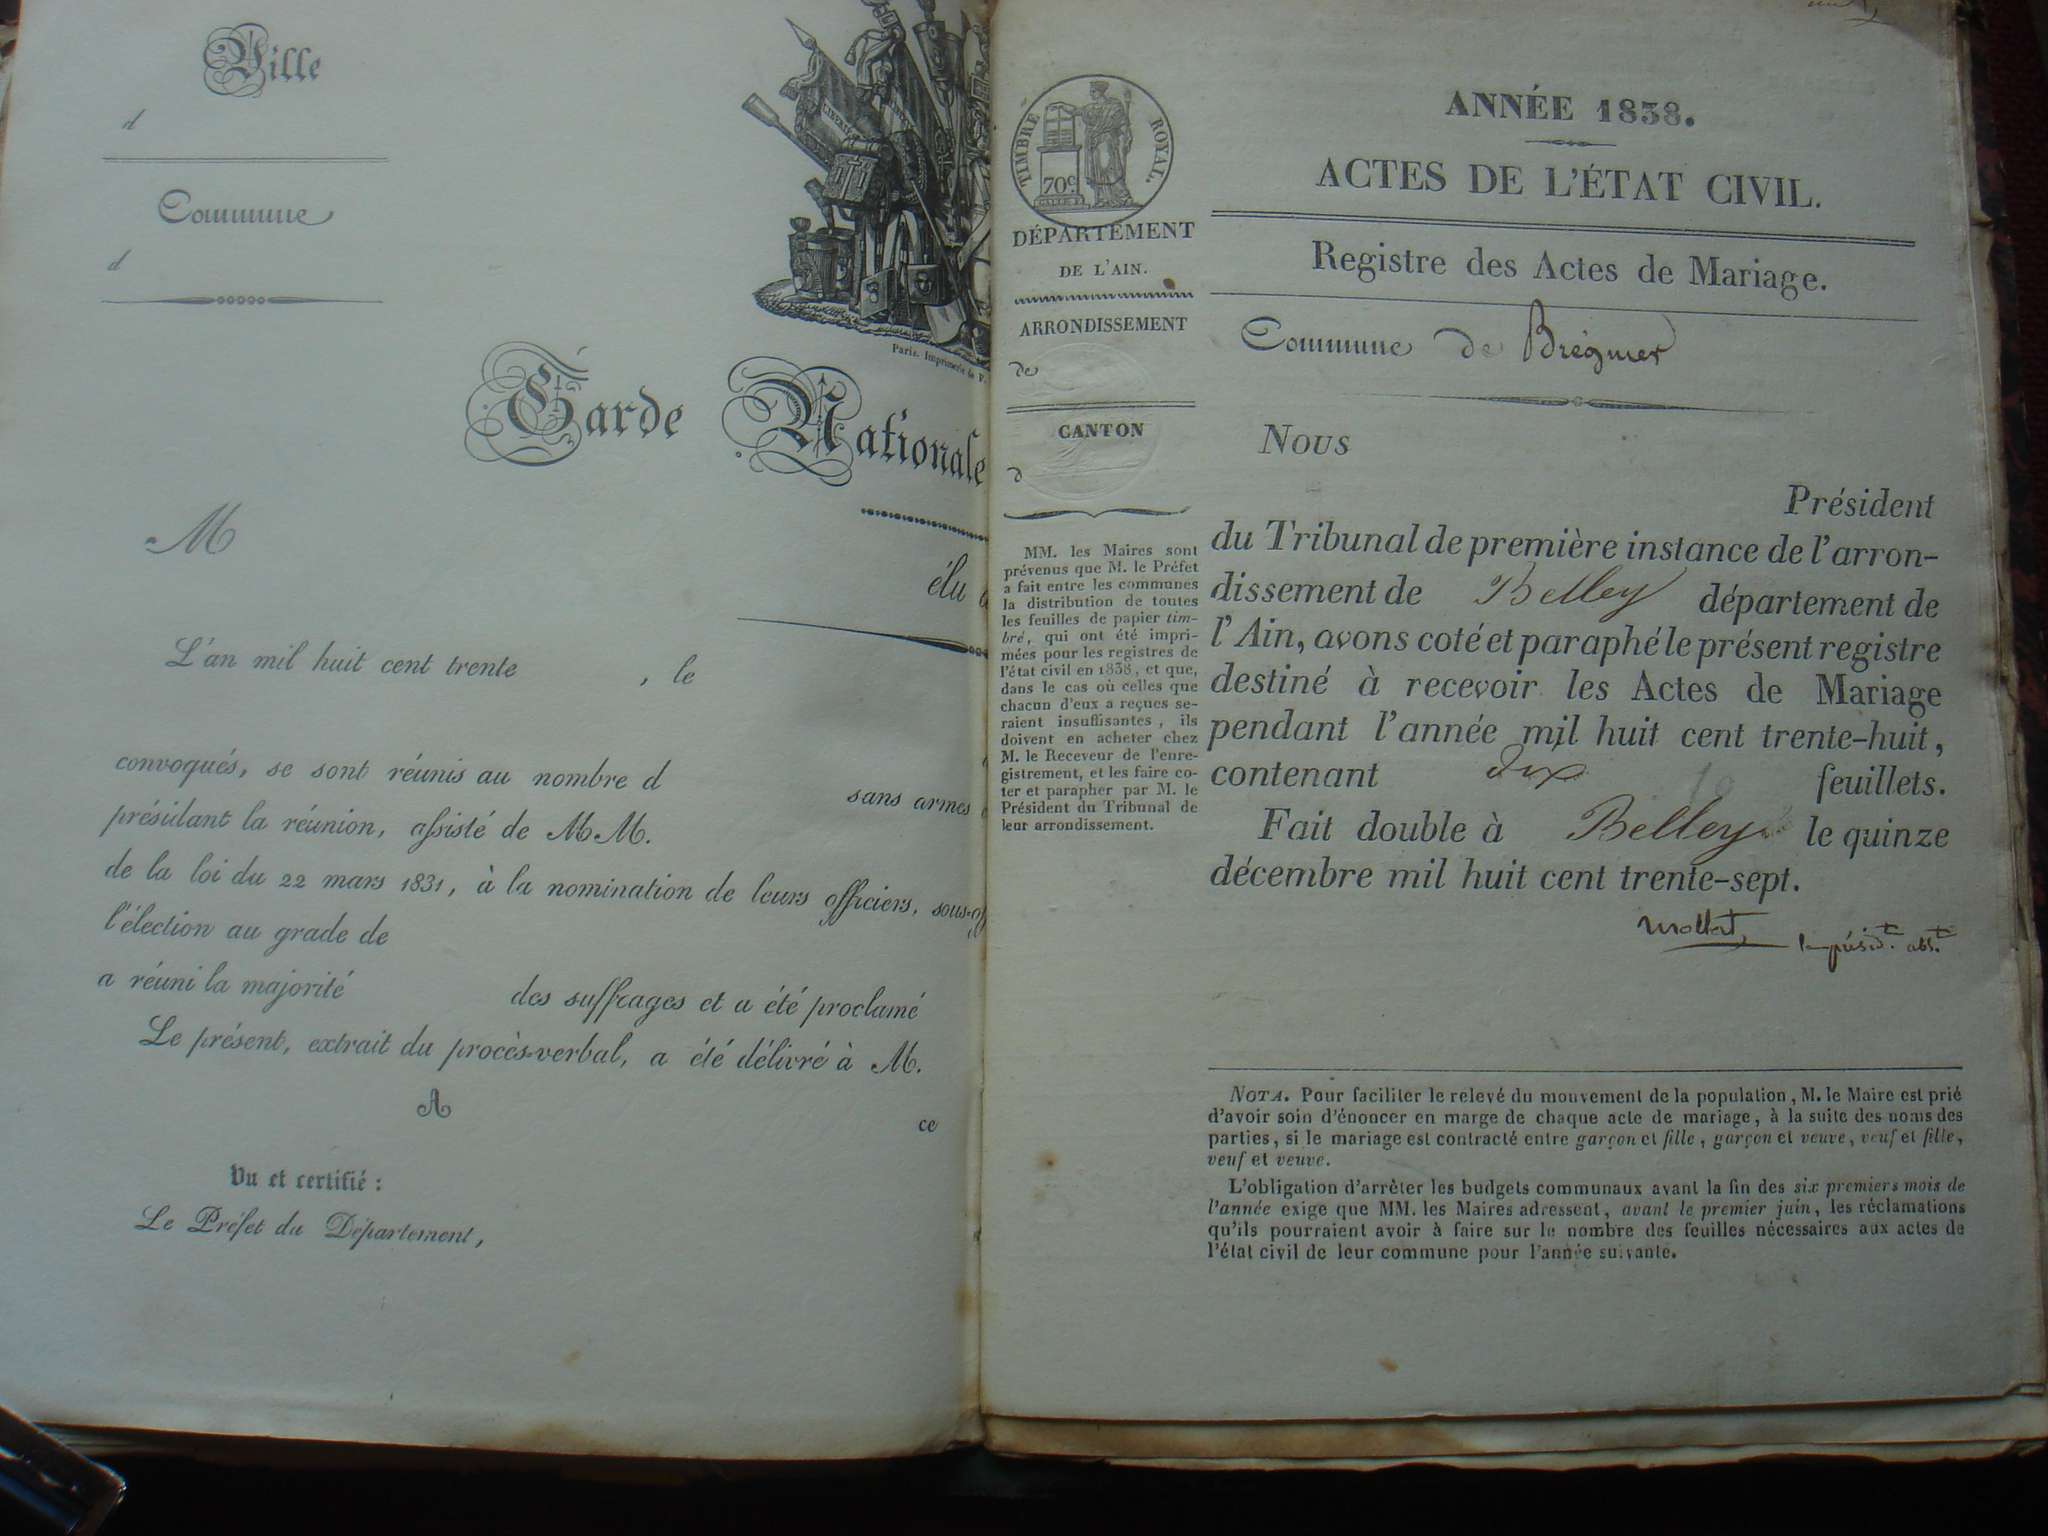 Ville
d
Commune
d
LIBERTÉ
Paris. Imprimerie de
Garde Nationale
M
élu
L'an mil huit cent trente , le
convoqués, se sont réunis au nombre d
sans armes
présidant la réunion, assisté de MM.
de la loi du 22 mars 1831, à la nomination de leurs officiers, sous-of
l'élection au grade de
a réuni la majorité des suffrages et a été proclamé
Le présent, extrait du procès-verbal, a été délivré à M.
A ce
Vu et certifié :
Le Préfet du Département,
TIMBRE ROYAL.
70c.
DÉPARTEMENT
DE L'AIN.
ARRONDISSEMENT
de
CANTON
d
MM. les Maires sont
prévenus que M. le Préfet
a fait entre les communes
la distribution de toutes
les feuilles de papier tim-
bré, qui ont été impri-
mées pour les registres de
l'état civil en 1838, et que,
dans le cas où celles que
chacun d'eux a reçues se-
raient insuffisantes, ils
doivent en acheter chez
M. le Receveur de l'enre-
gistrement, et les faire co-
ter et parapher par M. le
Président du Tribunal de
leur arrondissement.
ANNÉE 1838.
ACTES DE L'ÉTAT CIVIL.
Registre des Actes de Mariage.
Commune de Brégnier
Nous
Président
du Tribunal de première instance de l'arron-
dissement de Belley département de
l'Ain, avons coté et paraphé le présent registre
destiné à recevoir les Actes de Mariage
pendant l'année mil huit cent trente-huit,
contenant dix 10 feuillets.
Fait double à Belley le quinze
décembre mil huit cent trente-sept.
NOTA. Pour faciliter le relevé du mouvement de la population, M. le Maire est prié
d'avoir soin d'énoncer en marge de chaque acte de mariage, à la suite des noms des
parties, si le mariage est contracté entre garçon et fille, garçon et veuve, veuf et fille,
veuf et veuve.
L'obligation d'arrêter les budgets communaux avant la fin des six premiers mois de
l'année exige que MM. les Maires adressent, avant le premier juin, les réclamations
qu'ils pourraient avoir à faire sur le nombre des feuilles nécessaires aux actes de
l'état civil de leur commune pour l'année suivante.